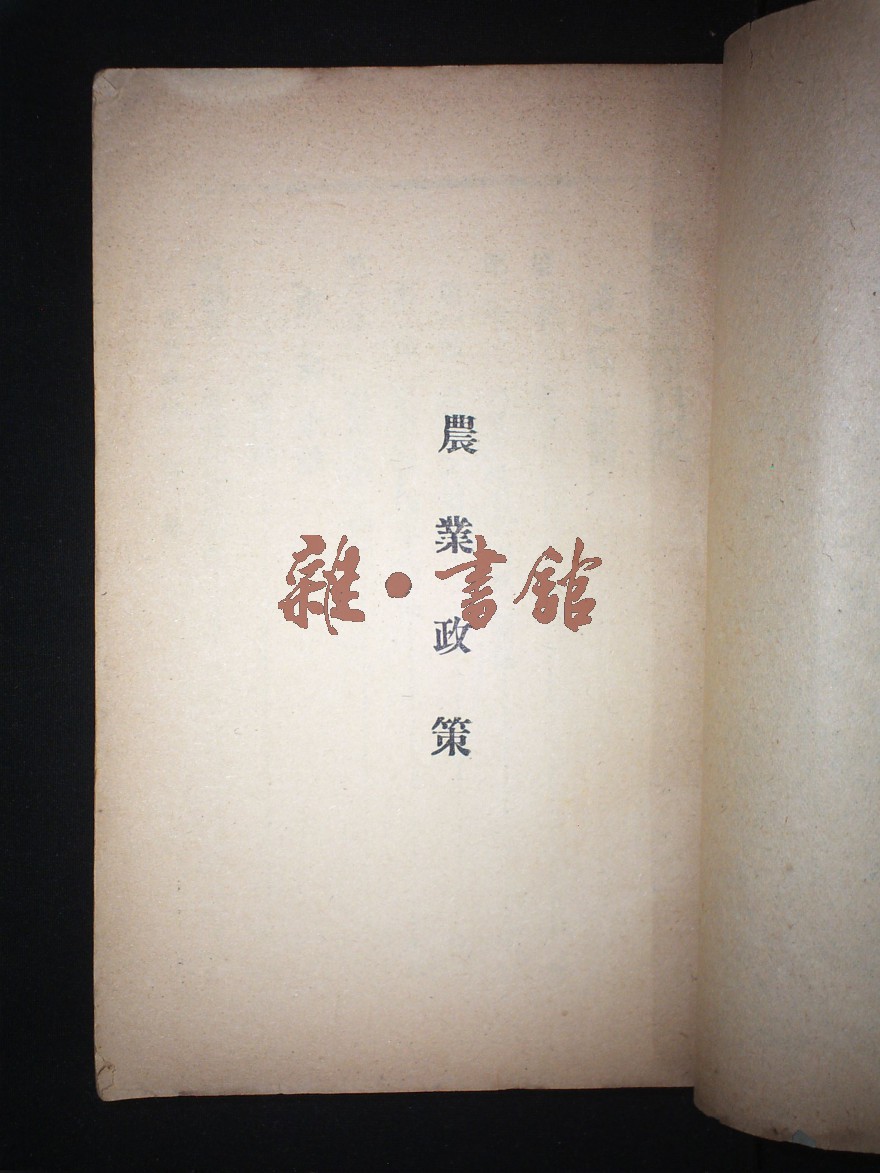 農業政策
雜·書館